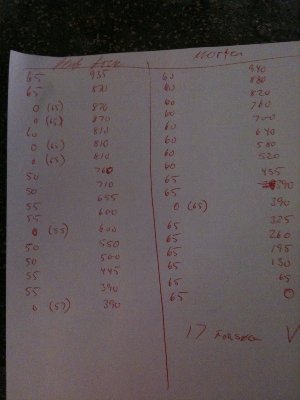 65 935
65 870
0 (65) 870
0 (65) 870
60 810
0 (65) 810
0 (65) 810
50 760
50 710
55 655
55 600
0 (55) 600
50 550
50 500
55 445
55 390
0 (57) 390
Morten
60 940
60 880
60 820
60 760
60 700
60 640
60 580
60 520
65 455
65 390
0 (65) 390
65 325
65 260
65 195
65 130
65 65
65 0
17 FORSØK V